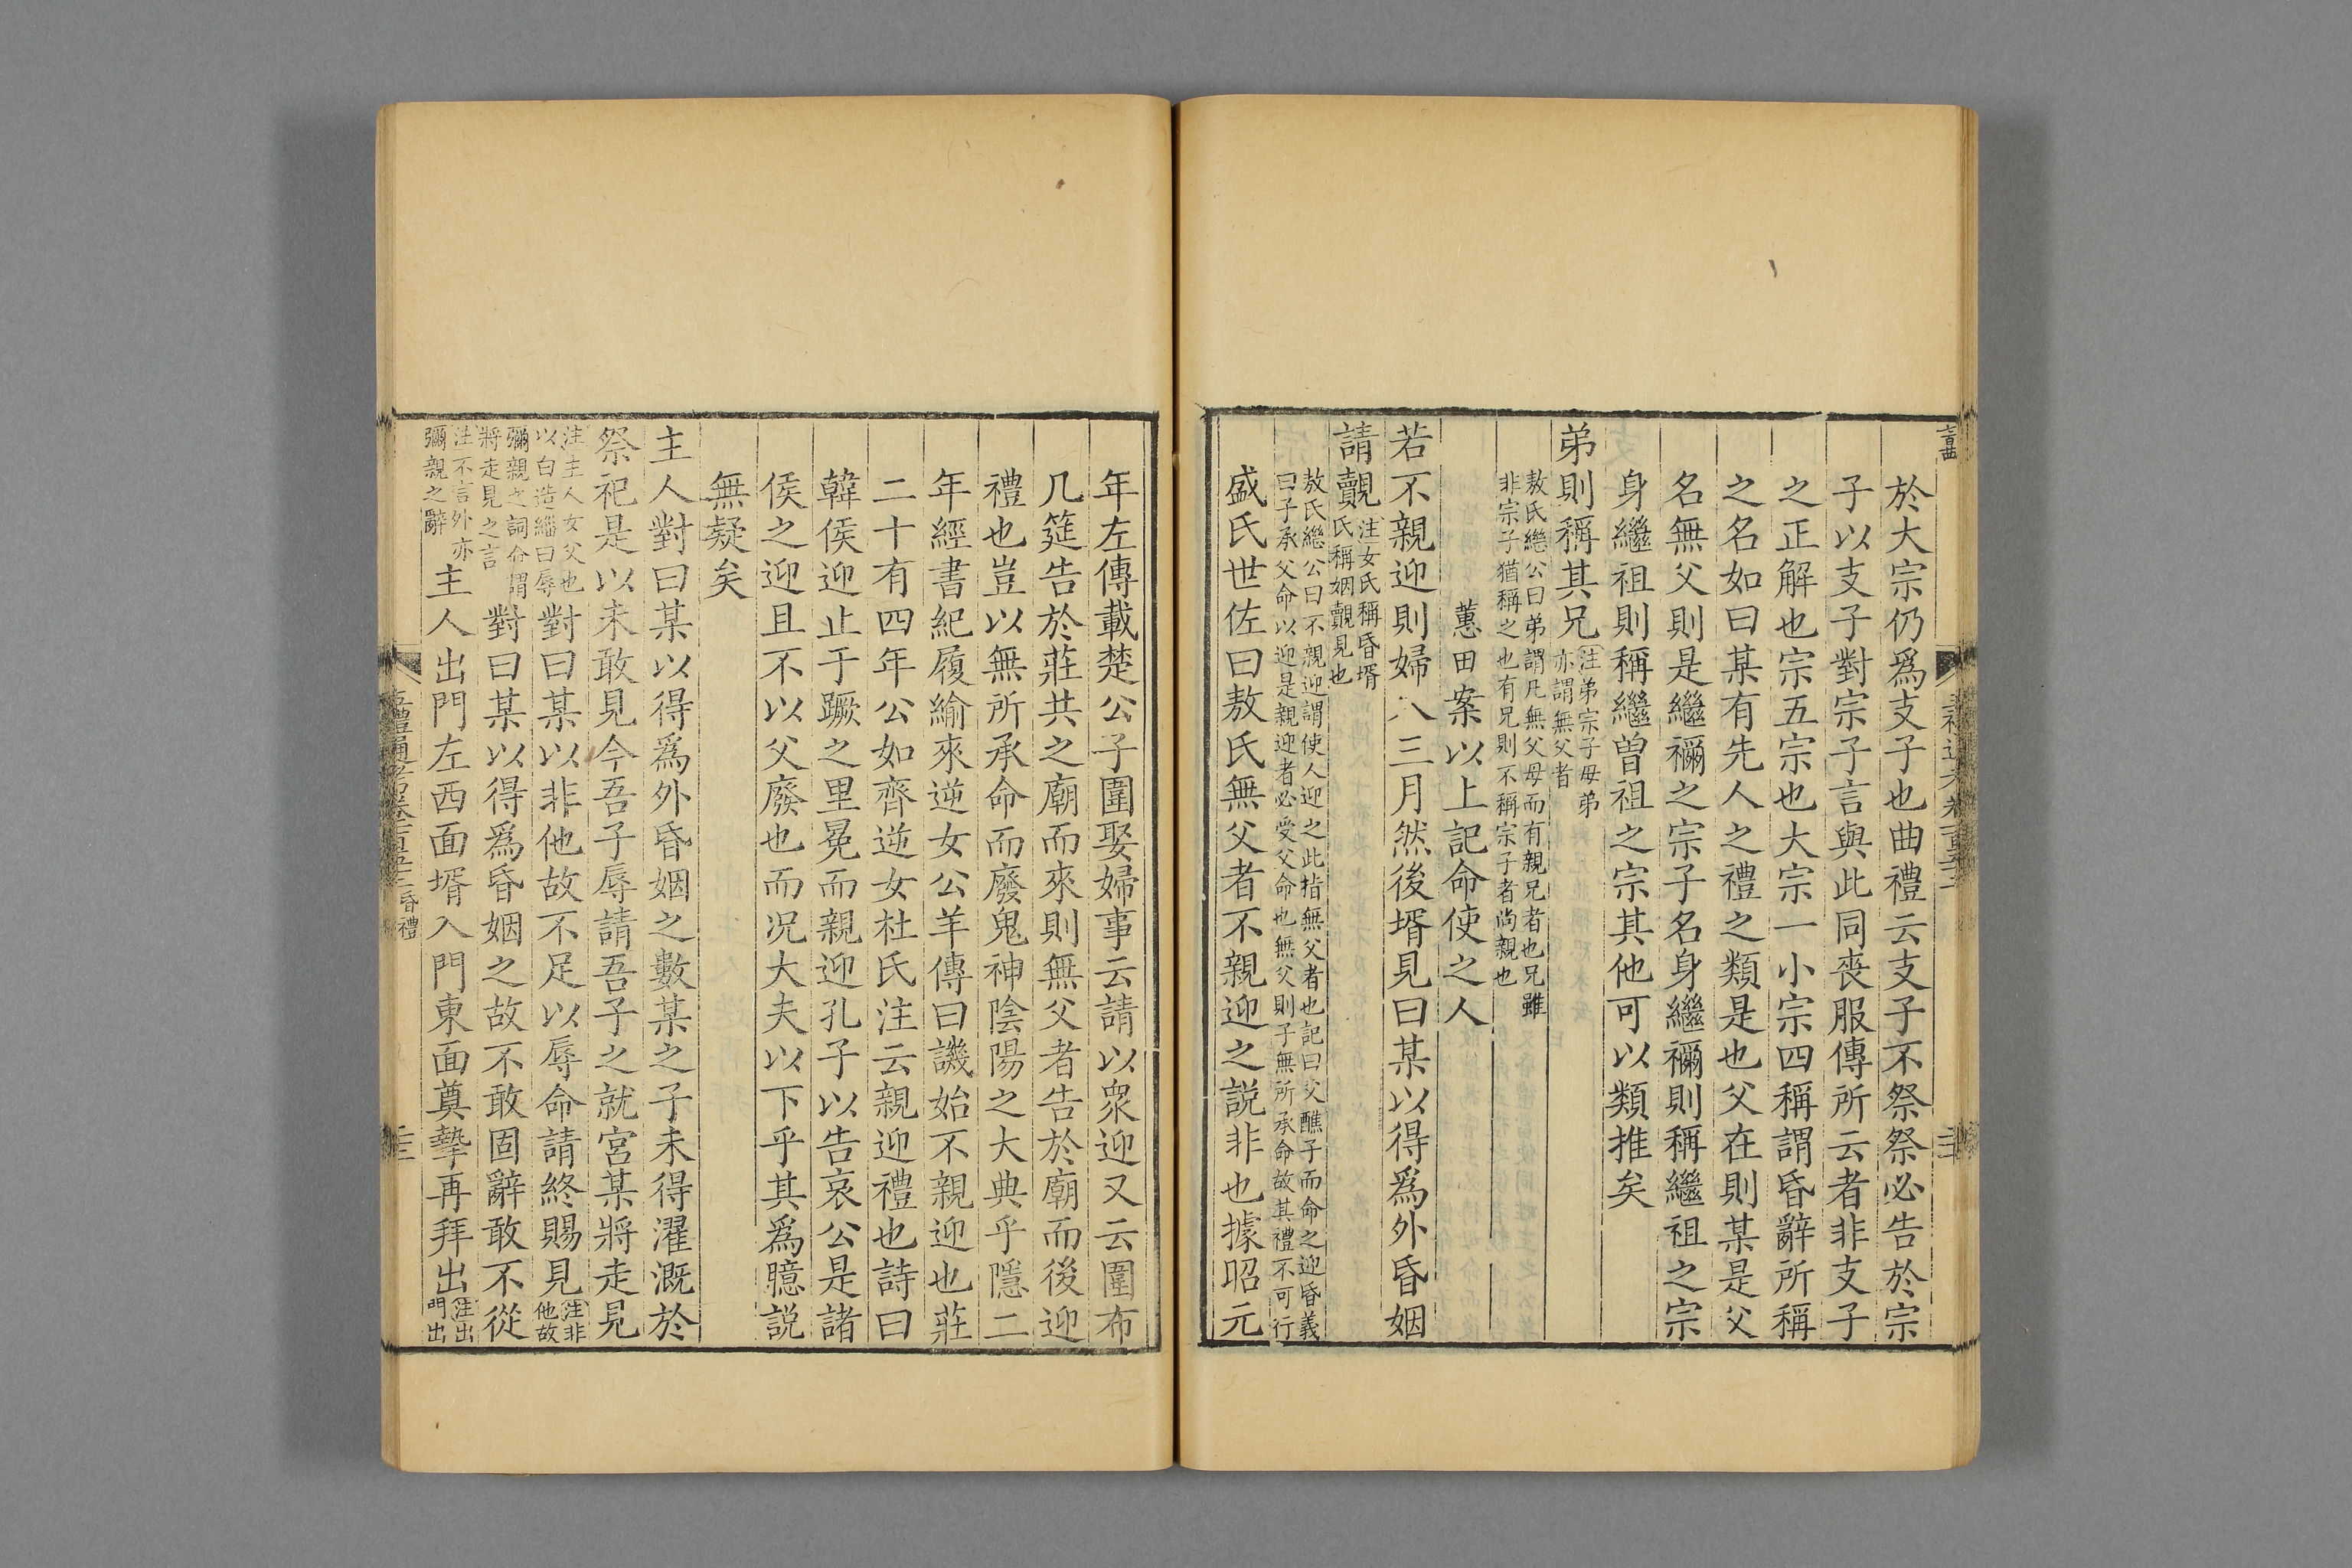 於大宗仍爲支子也曲禮云支子不祭祭必告於宗
子以支子對宗子言與此同喪服傳所云者非支子
之正解也宗五宗也大宗一小宗四稱謂昏辭所稱
之名如曰某有先人之禮之類是也父在則某是父
名無父則是繼禰之宗子名身繼禰則稱繼祖之宗
身繼祖則稱繼曽祖之宗其他可以類推矣
弟則稱其兄注弟宗子母弟
亦謂無父者
敖氏繼公曰弟謂凡無父母而有親兄者也兄雖
非宗子猶稱之也有兄則不稱宗子者尚親也
蕙田案以上記命使之人
若不親迎則婦入三月然後壻見曰某以得爲外昏姻
請覿注女氏稱昏壻
氏稱姻覿見也
敖氏繼公曰不親迎謂使人迎之此指無父者也記曰父醮子而命之迎昏義
曰子承父命以迎是親迎者必受父命也無父則子無所承命故其禮不可行
盛氏世佐曰敖氏無父者不親迎之説非也據昭元
年左傳載楚公子圍娶婦事云請以衆迎又云圍布
几筵告於莊共之廟而來則無父者告於廟而後迎
禮也豈以無所承命而廢鬼神陰陽之大典乎隱二
年經書紀履緰來逆女公羊傳曰譏始不親迎也莊
二十有四年公如齊逆女杜氏注云親迎禮也詩曰
韓侯迎止于蹶之里冕而親迎孔子以告哀公是諸
侯之迎且不以父廢也而況大夫以下乎其爲臆説
無疑矣
主人對曰某以得爲外昏姻之數某之子未得濯溉於
祭祀是以未敢見今吾子辱請吾子之就宮某將走見
注主人女父也
以白造緇曰辱對曰某以非他故不足以辱命請終賜見注非
他故
彌親之詞命謂
將走見之言對曰某以得爲昏姻之故不敢固辭敢不從
注不言外亦
彌親之辭主人出門左西面壻入門東面奠摯再拜出注出
門出
五禮通考卷一百五十三 昏禮